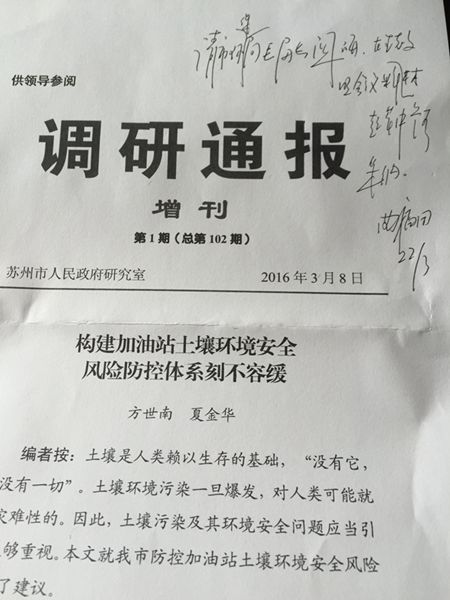 供领导参阅
调研通报
增刊
第1期（总第102期）
苏州市人民政府研究室 2016年3月8日
构建加油站土壤环境安全
风险防控体系刻不容缓
方世南 夏金华
编者按：土壤是人类赖以生存的基础，“没有它，
没有一切”。土壤环境污染一旦爆发，对人类可能就
灾难性的。因此，土壤污染及其环境安全问题应当引
够重视。本文就我市防控加油站土壤环境安全风险
了建议。
22/3